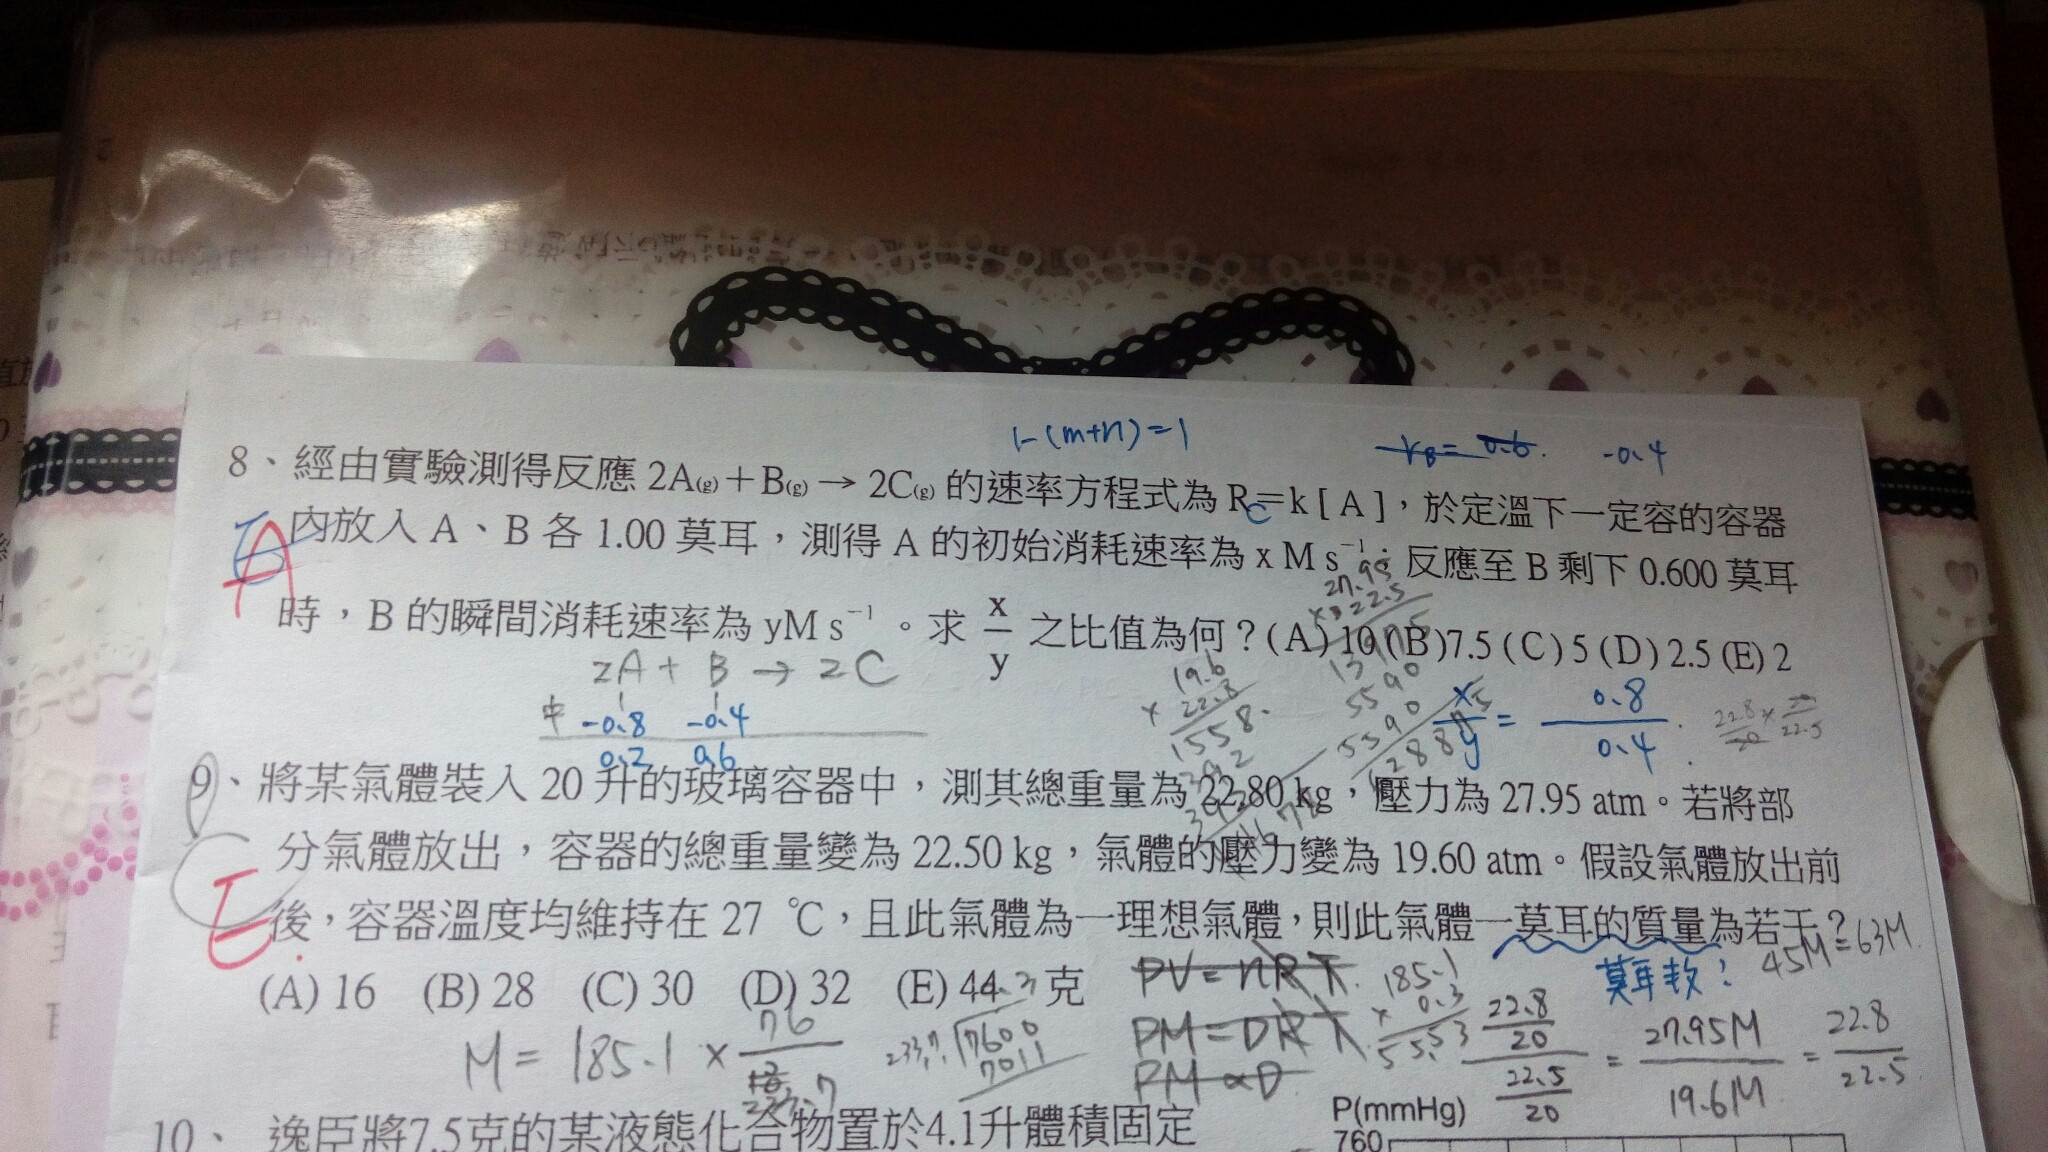 1-(m+n)=1
-0.4
8、經由實驗測得反應 2A(g)＋B(g) → 2C(g) 的速率方程式為 R_C=k [ A ]，於定溫下一定容的容器
內放入 A、B 各 1.00 莫耳，測得 A 的初始消耗速率為 x M s⁻¹；反應至 B 剩下 0.600 莫耳
A
時，B 的瞬間消耗速率為 yM s⁻¹。求 x/y 之比值為何？(A) 10 (B)7.5 (C) 5 (D) 2.5 (E) 2
27.95
2A + B → 2C
1 1
中 -0.8 -0.4
0.2 0.6
19.6
× 22.8
1558
x/y = 0.8/0.4
9、將某氣體裝入 20 升的玻璃容器中，測其總重量為 22.80 kg，壓力為 27.95 atm。若將部
分氣體放出，容器的總重量變為 22.50 kg，氣體的壓力變為 19.60 atm。假設氣體放出前
E
後，容器溫度均維持在 27 ℃，且此氣體為一理想氣體，則此氣體一莫耳的質量為若干？
45M=63M
莫耳數？
(A) 16 (B) 28 (C) 30 (D) 32 (E) 44 克
PV=nRT
PM=DRT
PM∝D
185.1
× 0.3
22.8/20
22.5/20
= 27.95M/19.6M = 22.8/22.5
M= 185.1 × 76
233.7
7600
7011
P(mmHg)
760
10、 逸臣將7.5克的某液態化合物置於4.1升體積固定